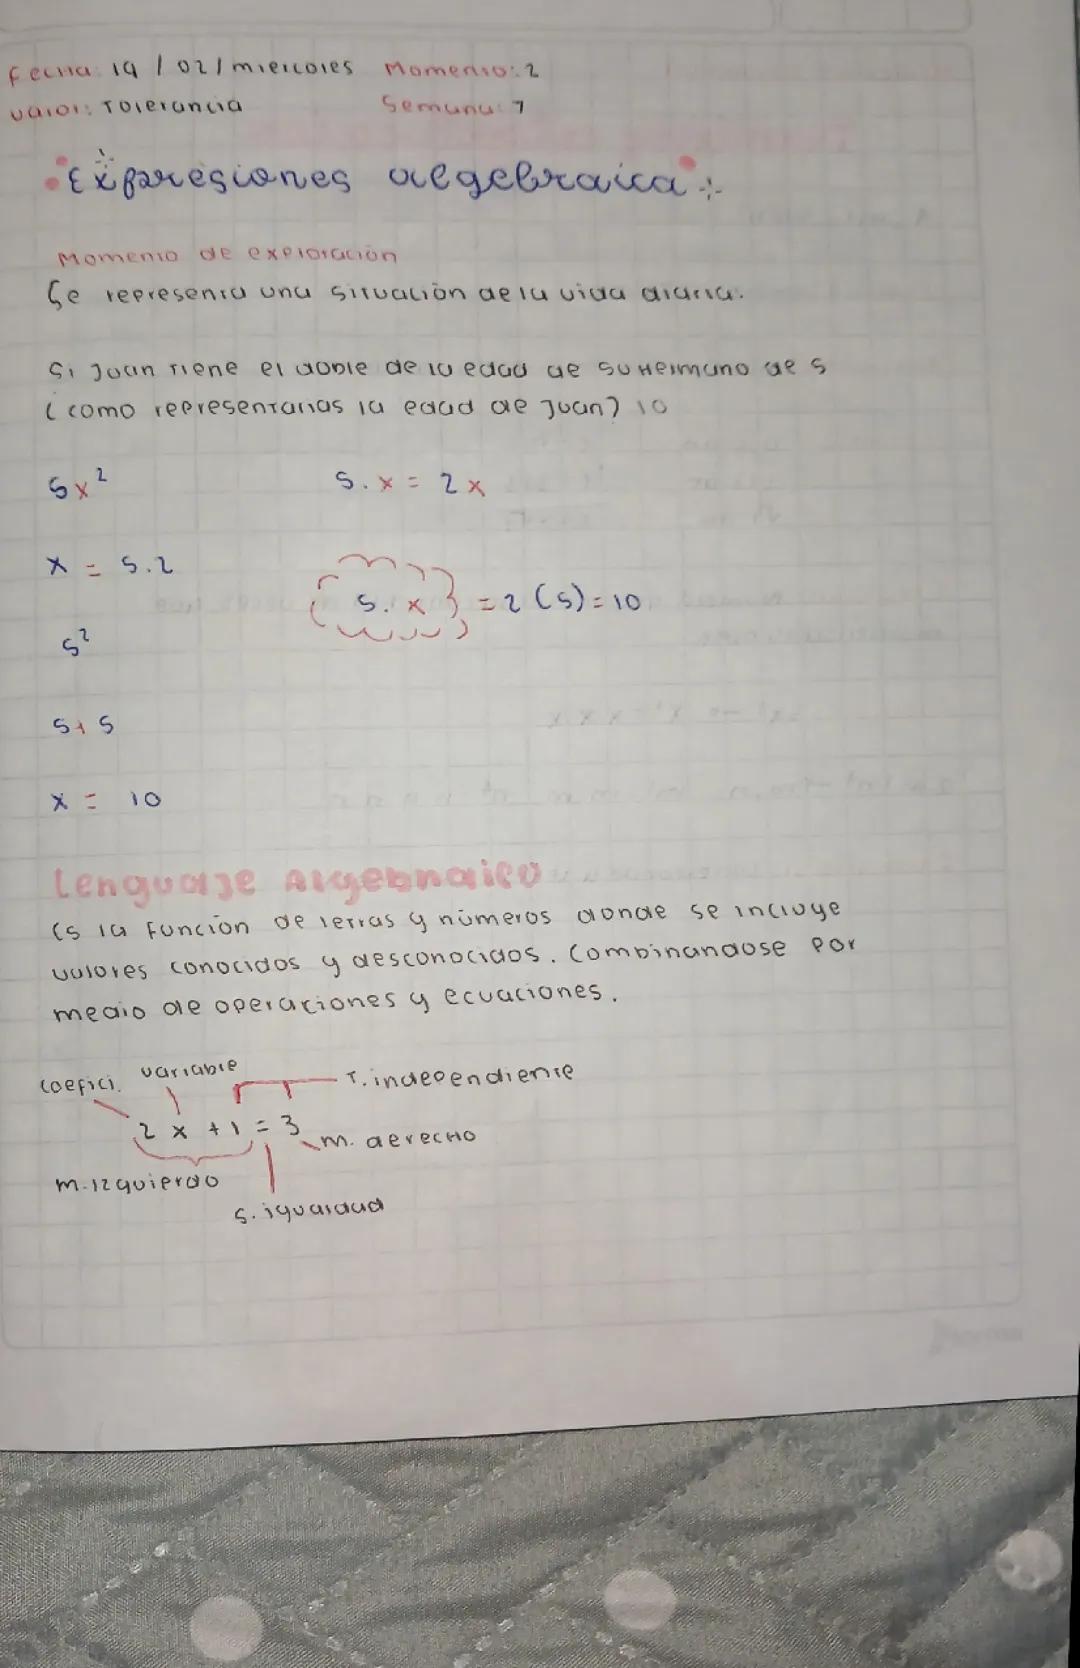 Fecha: 19 / 02 / miercoles Momento: 2
Valor: Tolerancia Semana: 7
Expresiones algebraica
Momento de exploración
Se representa una situación de la vida diaria.
Si Juan tiene el doble de la edad de su Hermano de 5
¿como representarias la edad de Juan? 10
5x² 5.x = 2x
x = 5.2
5.x = 2(5) = 10
5²
5+5
x = 10
Lenguaje Algebraico
Es la función de letras y números donde se incluye
valores conocidos y desconocidos. Combinandose por
medio de operaciones y ecuaciones.
coefici. variable T. independiente
2x + 1 = 3
m. derecho
m. izquierdo
s. igualdad